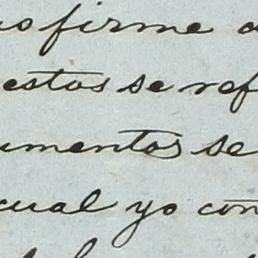 firme
estos se ref
umentos se
cual yo con